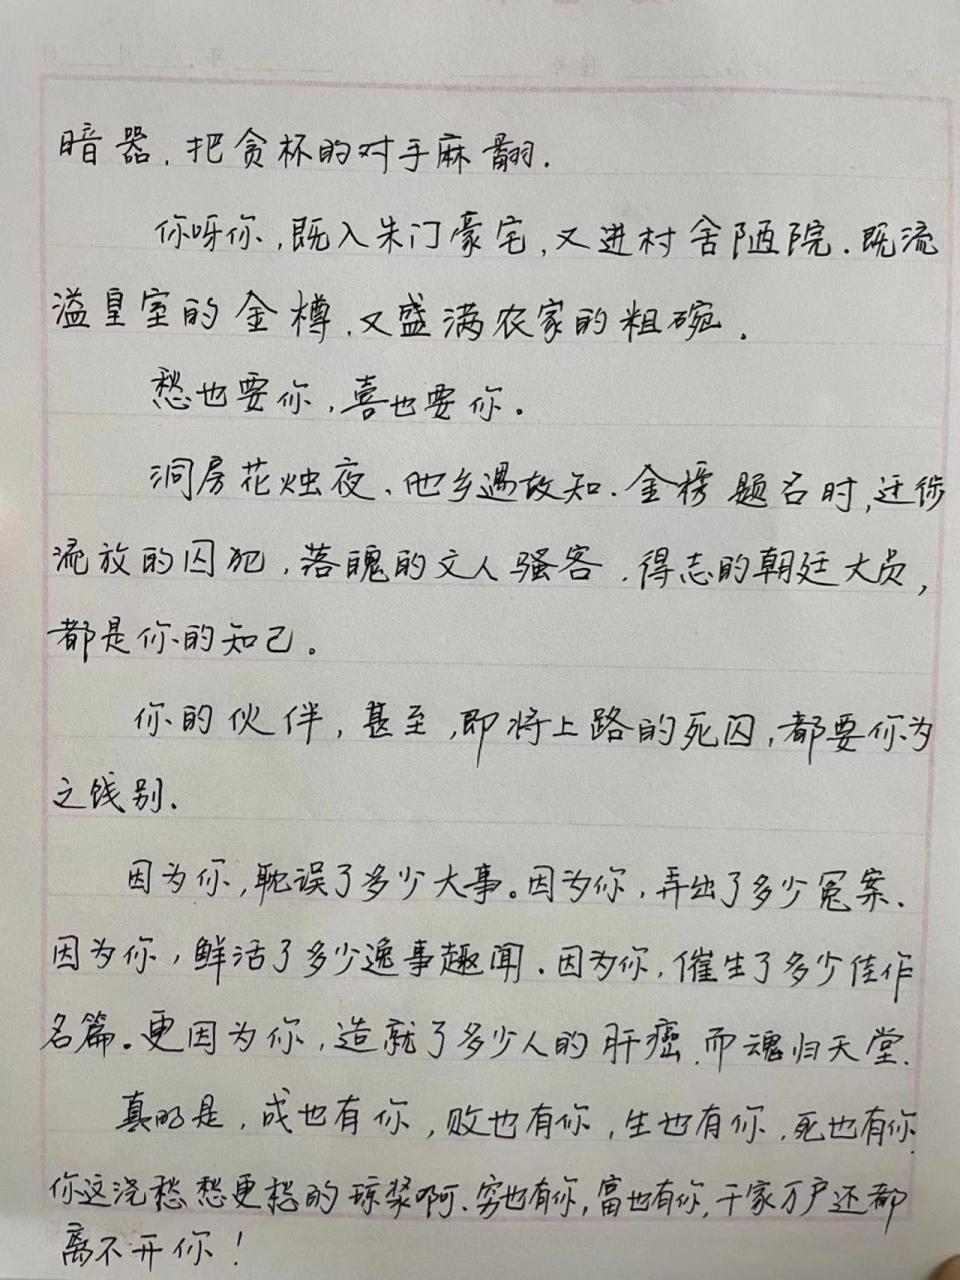 暗器，把贪杯的对手麻翻.
你呀你，既入朱门豪宅，又进村舍陋院.既流
溢皇室的金樽、又盛满农家的粗碗.
愁也要你，喜也要你。
洞房花烛夜、他乡遇故知.金榜题名时，迁徙
流放的囚犯，落魄的文人骚客.得志的朝廷大员，
都是你的知己。
你的伙伴，甚至，即将上路的死囚，都要你为
之饯别.
因为你，耽误了多少大事。因为你，弄出了多少冤案.
因为你，鲜活了多少逸事趣闻.因为你，催生了多少佳作
名篇。更因为你，造就了多少人的肝癌.而魂归天堂.
真的是，成也有你，败也有你，生也有你，死也有你.
你这浇愁愁更愁的琼浆啊.穷也有你，富也有你，千家万户还都
离不开你！